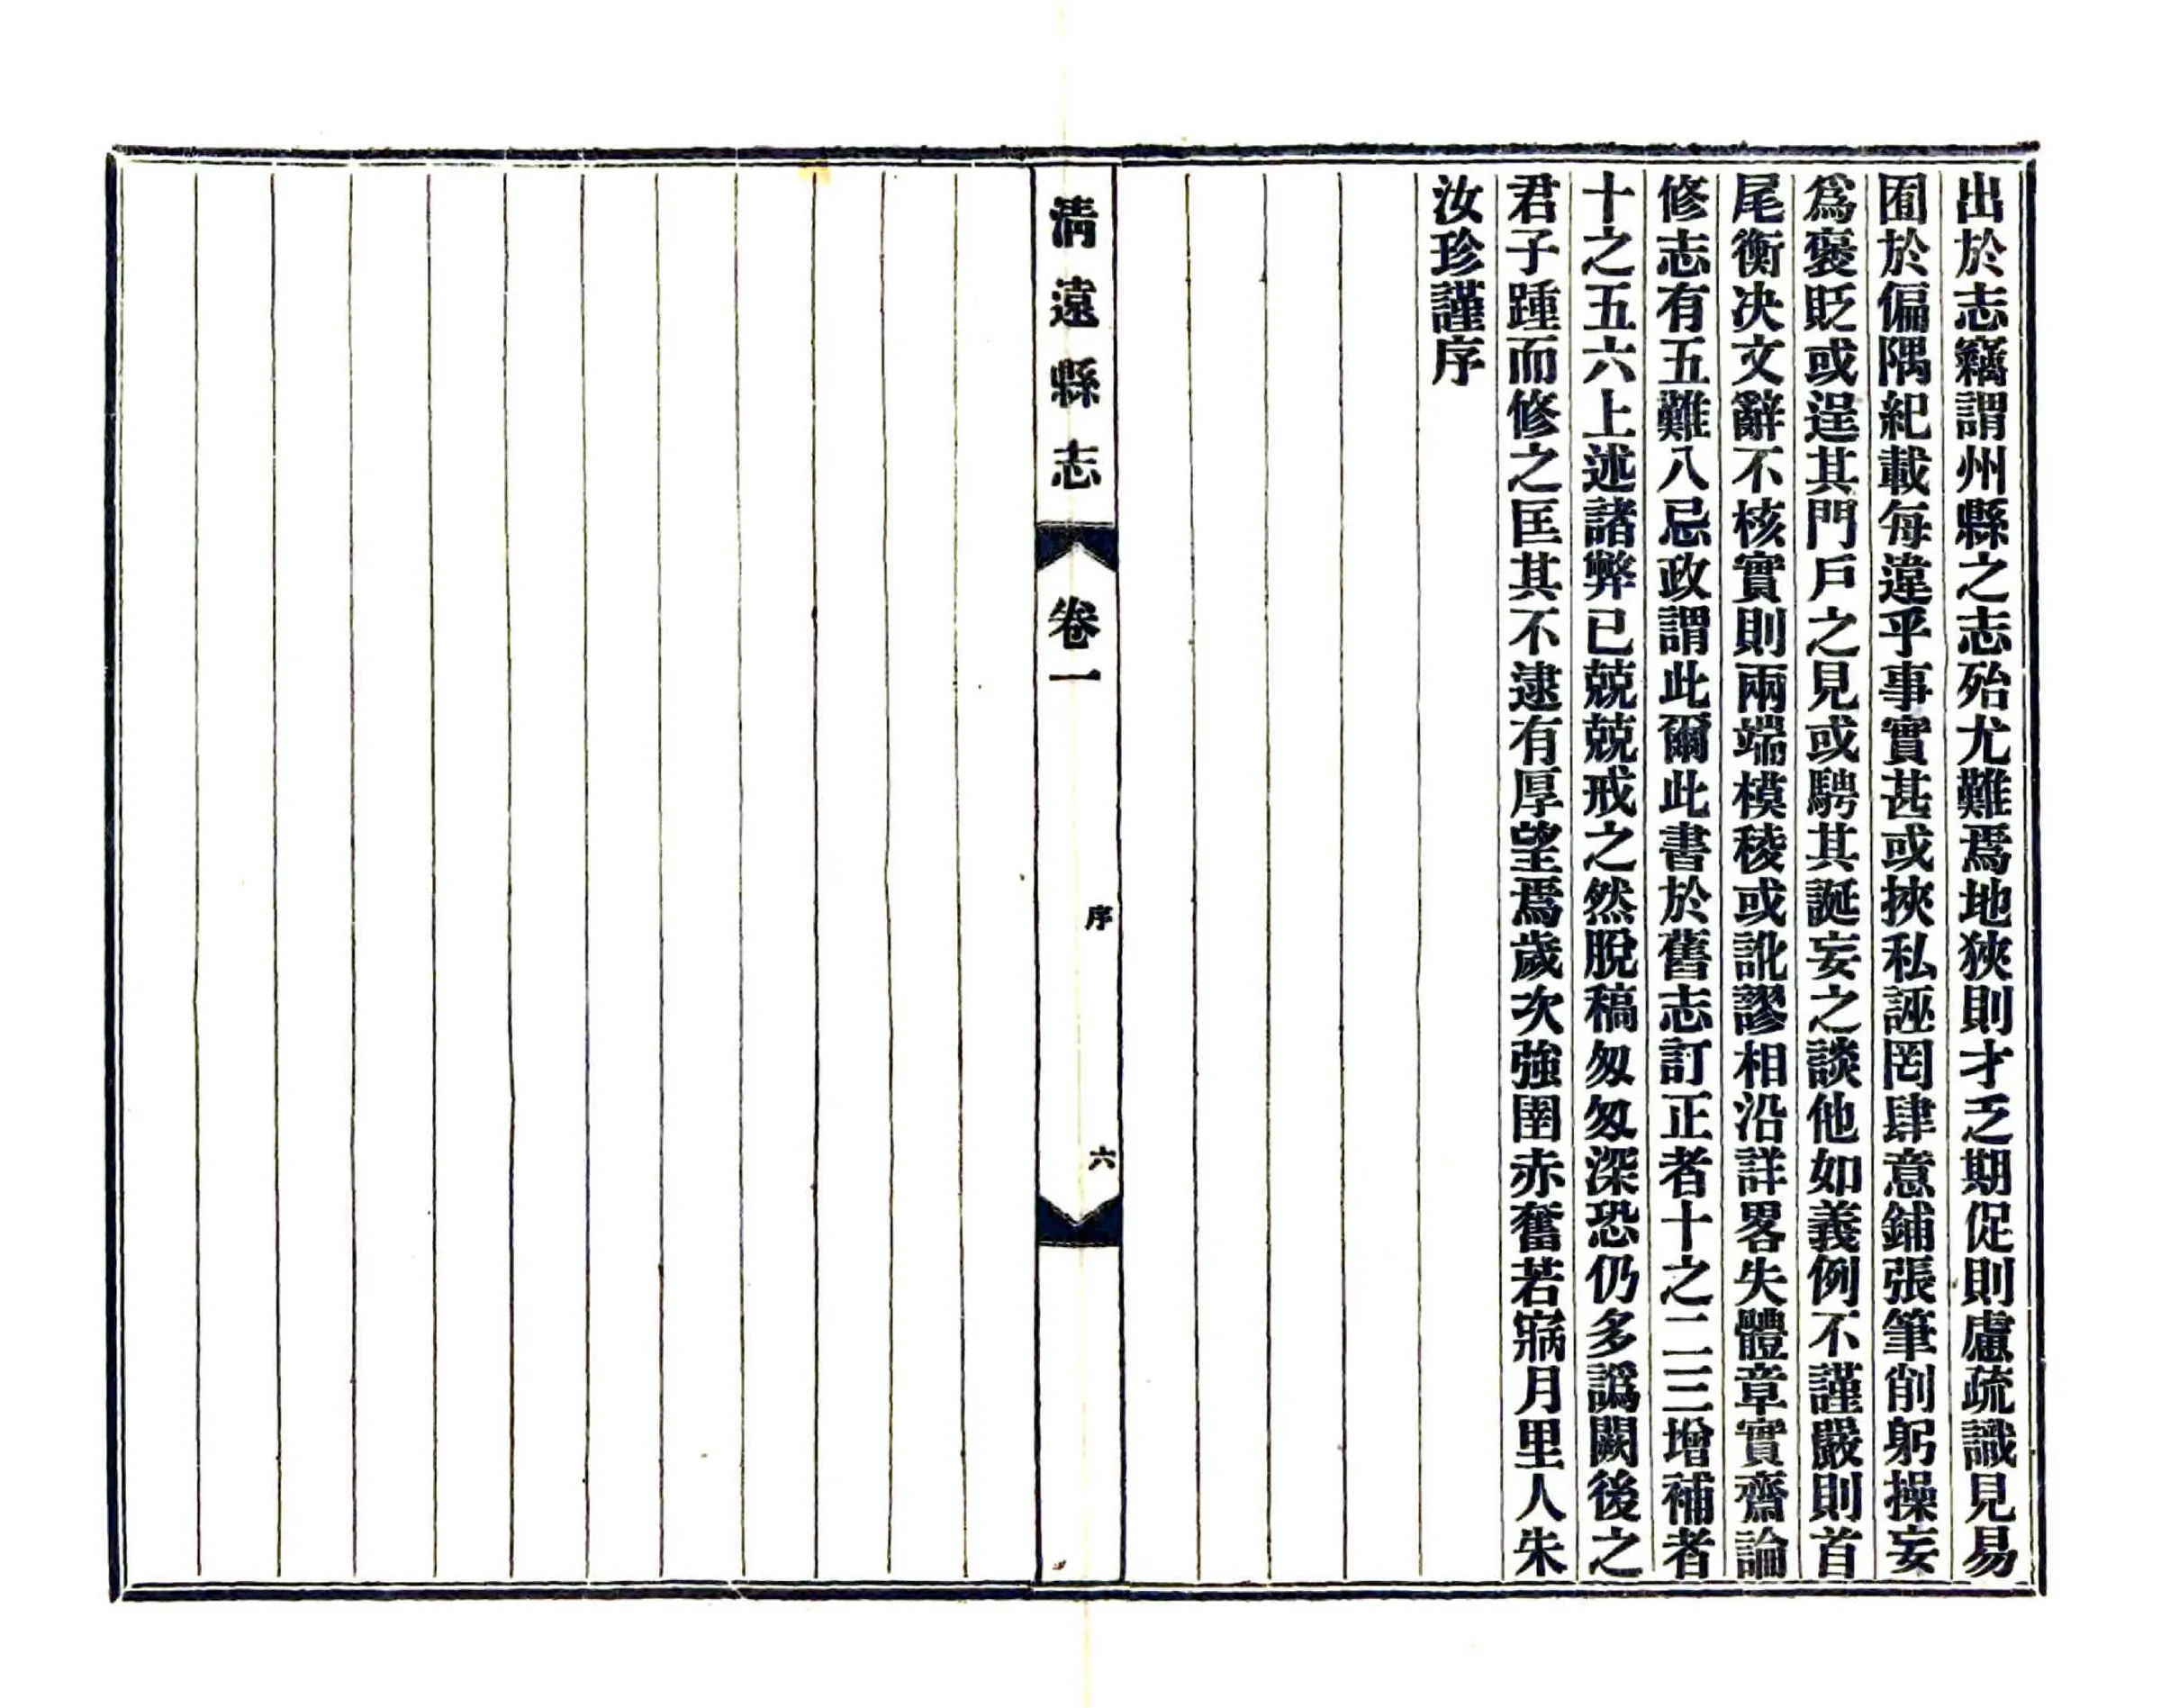 出於志竊謂州縣之志殆尤難焉地狹則才乏期促則慮疏識見易
囿於偏隅紀載每違乎事實甚或挾私誣罔肆意鋪張筆削躬操妄
爲褒貶或逞其門戶之見或騁其誕妄之談他如義例不謹嚴則首
尾衡决文辭不核實則兩端模稜或訛謬相沿詳畧失體章實齋論
修志有五難八忌政謂此爾此書於舊志訂正者十之二三增補者
十之五六上述諸弊已兢兢戒之然脫稿匆匆深恐仍多譌闕後之
君子踵而修之匡其不逮有厚望焉歲次強圉赤奮若寎月里人朱
汝珍謹序
清遠縣志
卷一
序
六